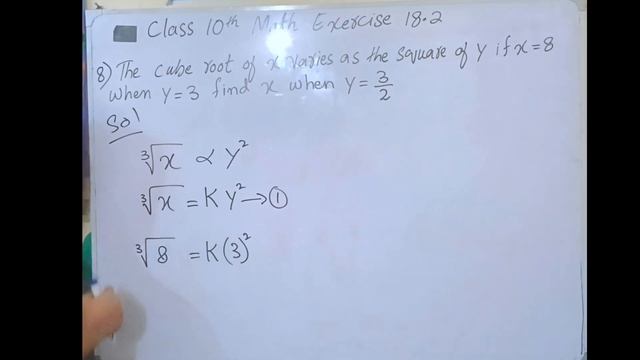 Class 10th Math Exercise 18.2
8) The cube root of x varies as the square of y if x=8
when y=3 find x when y=3/2
Sol
∛x ∝ y²
∛x = K y² → ①
∛8 = K(3)²